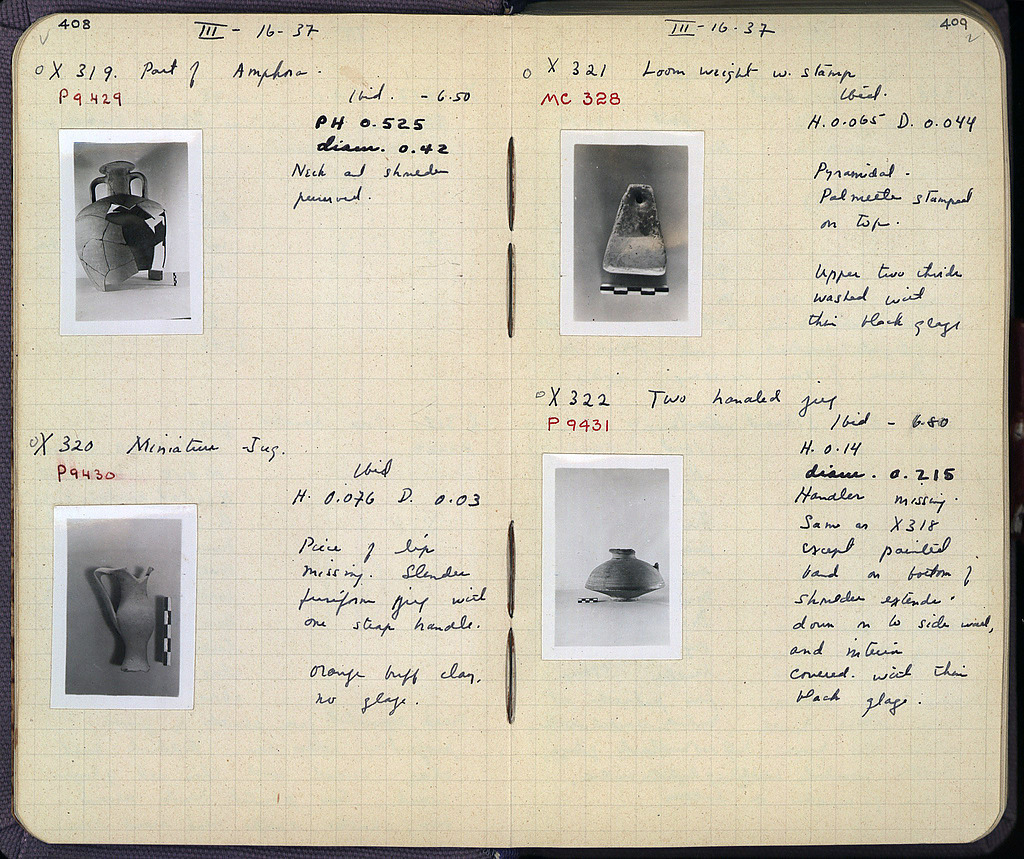 408
III - 16 - 37
X 319. Part of Amphora.
P 9429
Ibid. - 6.50
PH 0.525
diam. 0.42
Neck and shoulder
preserved.
X 320 Miniature Jug.
P 9430
Ibid
H. 0.076 D. 0.03
Piece of lip
missing. Slender
fusiform jug with
one strap handle.
Orange buff clay,
no glaze.
409
III - 16 - 37
X 321 Loom weight w. stamp
MC 328
Ibid.
H. 0.065 D. 0.044
Pyramidal.
Palmette stamped
on top.
Upper two thirds
washed with
thin black glaze
X 322 Two handled jug
P 9431
Ibid - 6.80
H. 0.14
diam. 0.215
Handles missing.
Same as X318
except painted
band on bottom of
shoulder extends
down on to side wall,
and interior
covered with thin
black glaze.